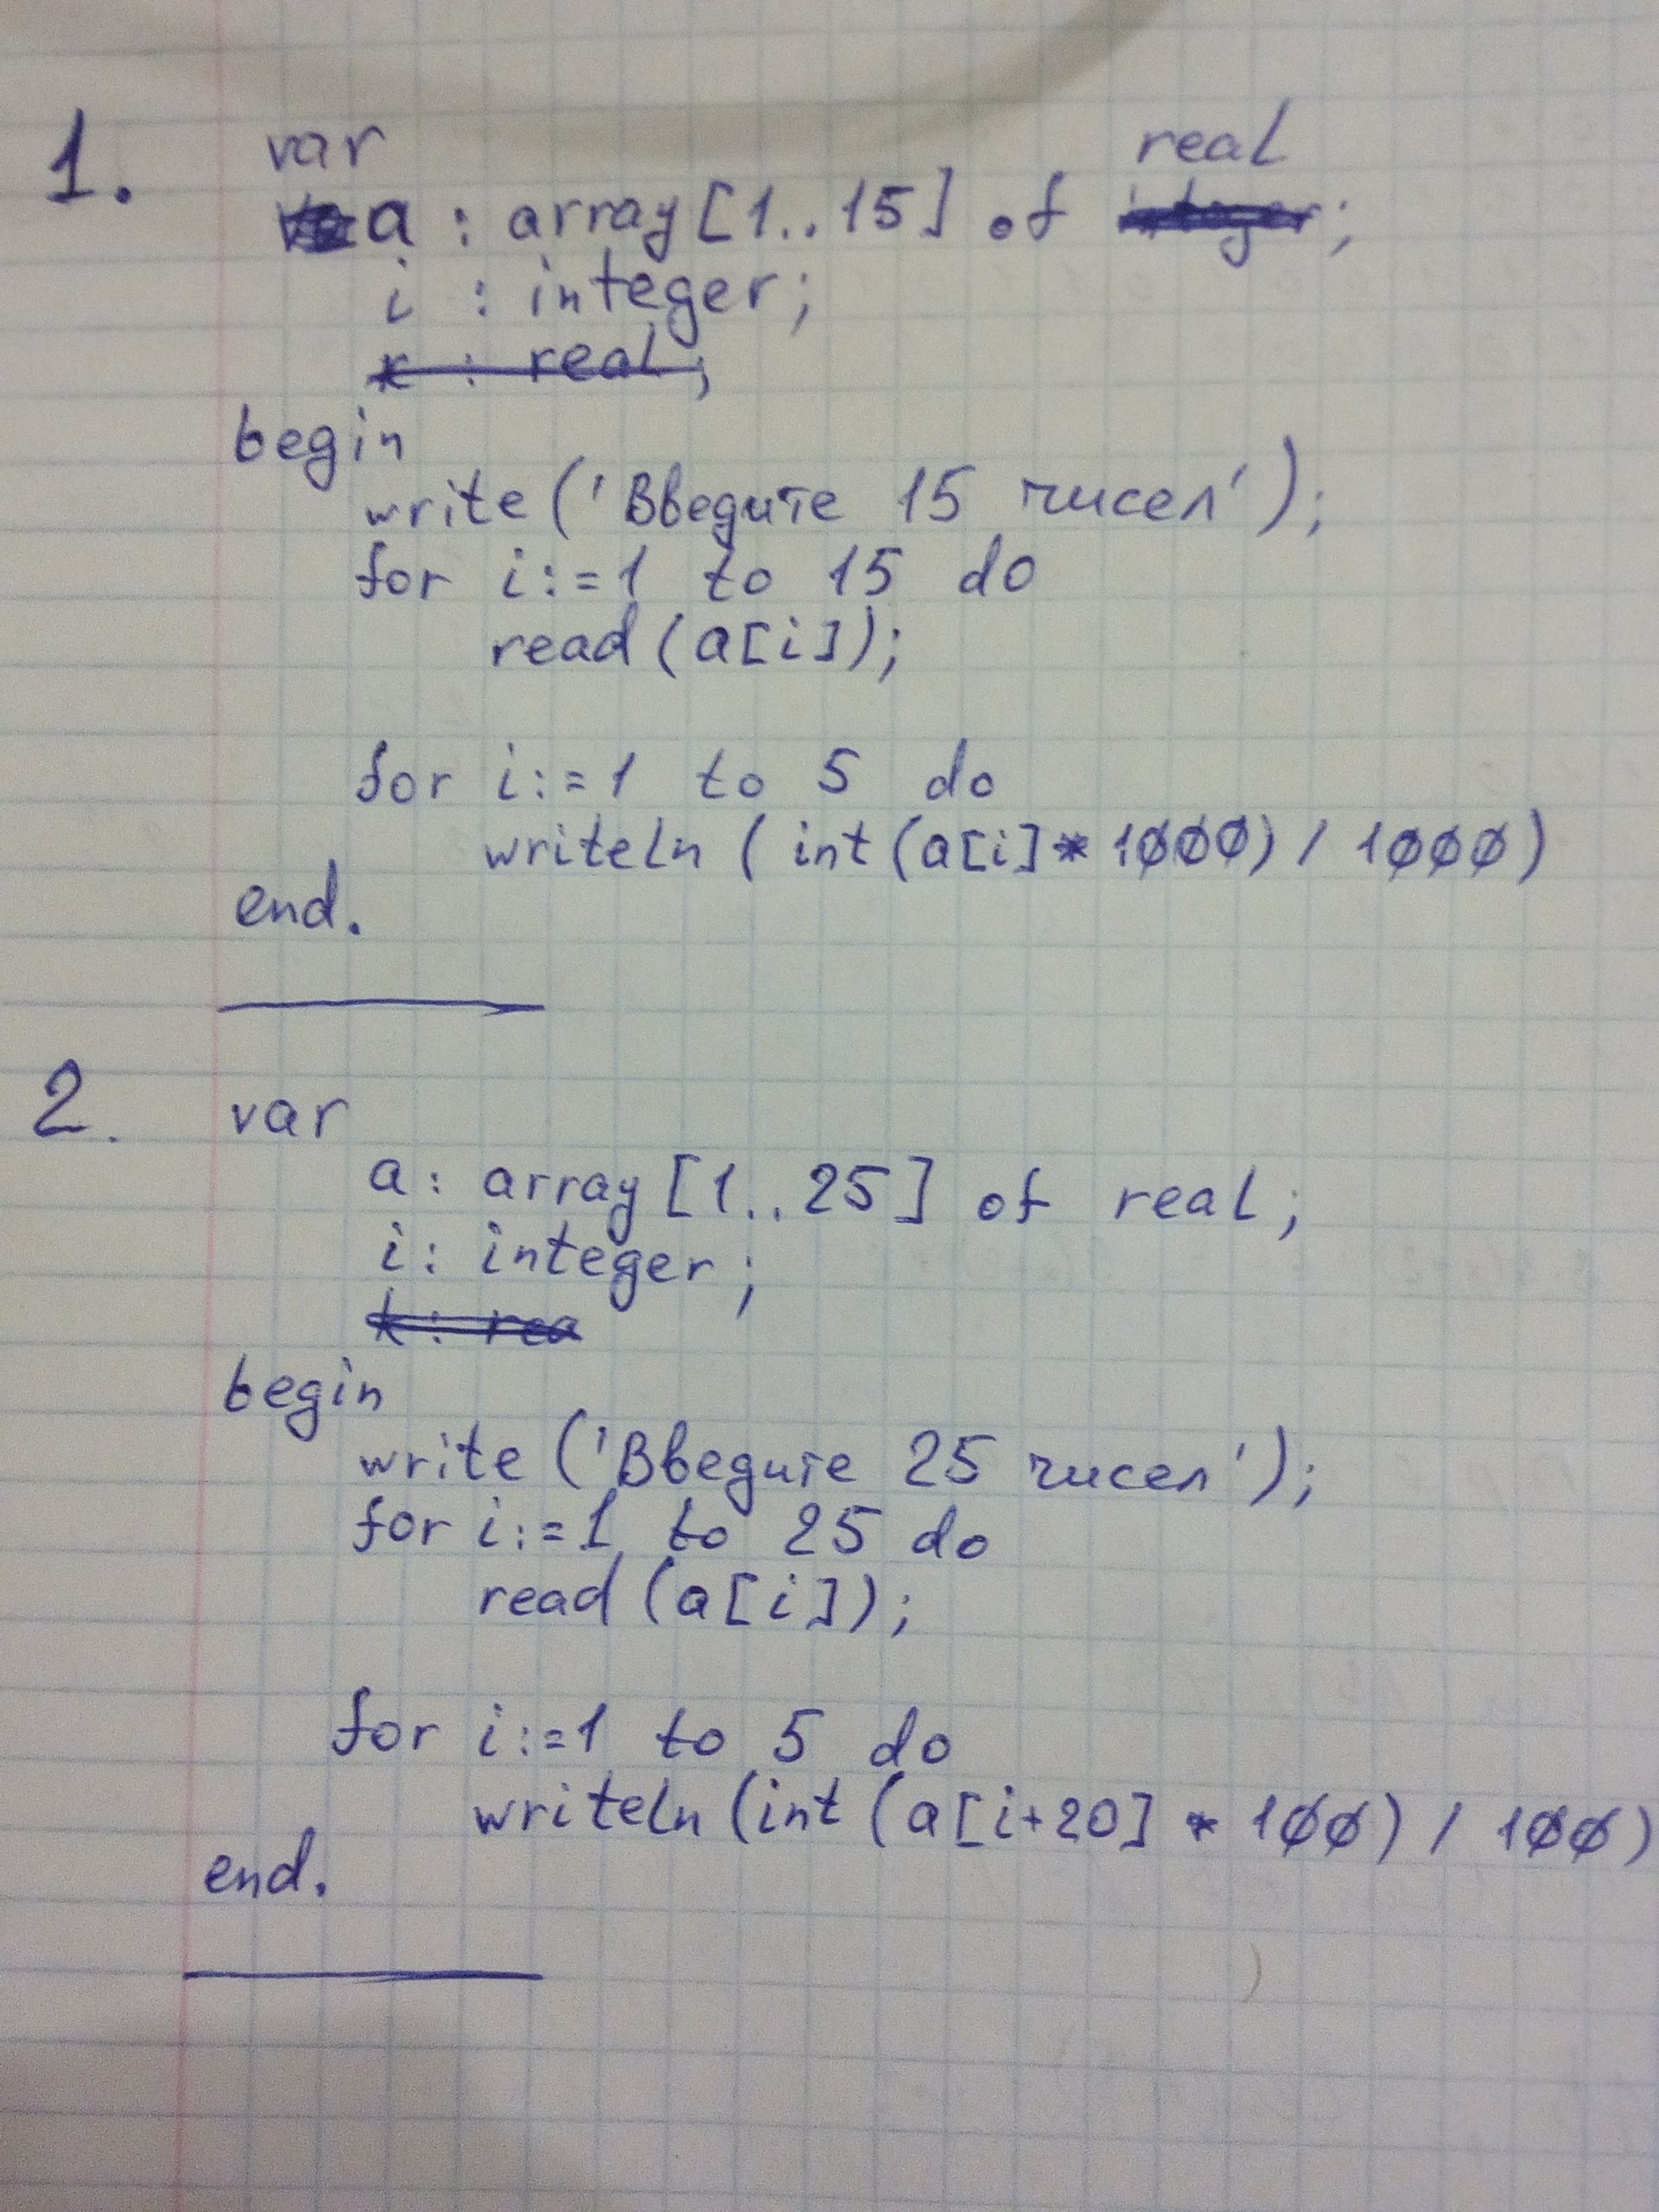 1. var real
a : array [1..15] of integer;
i : integer;
k : real;
begin
write ('Введите 15 чисел');
for i:=1 to 15 do
read (a[i]);
for i:=1 to 5 do
writeln ( int (a[i]* 1000) / 1000)
end.
2. var
a: array [1..25] of real;
i: integer;
k: rea
begin
write ('Введите 25 чисел');
for i:=1 to 25 do
read (a[i]);
for i:=1 to 5 do
writeln (int (a[i+20] * 100) / 100)
end.